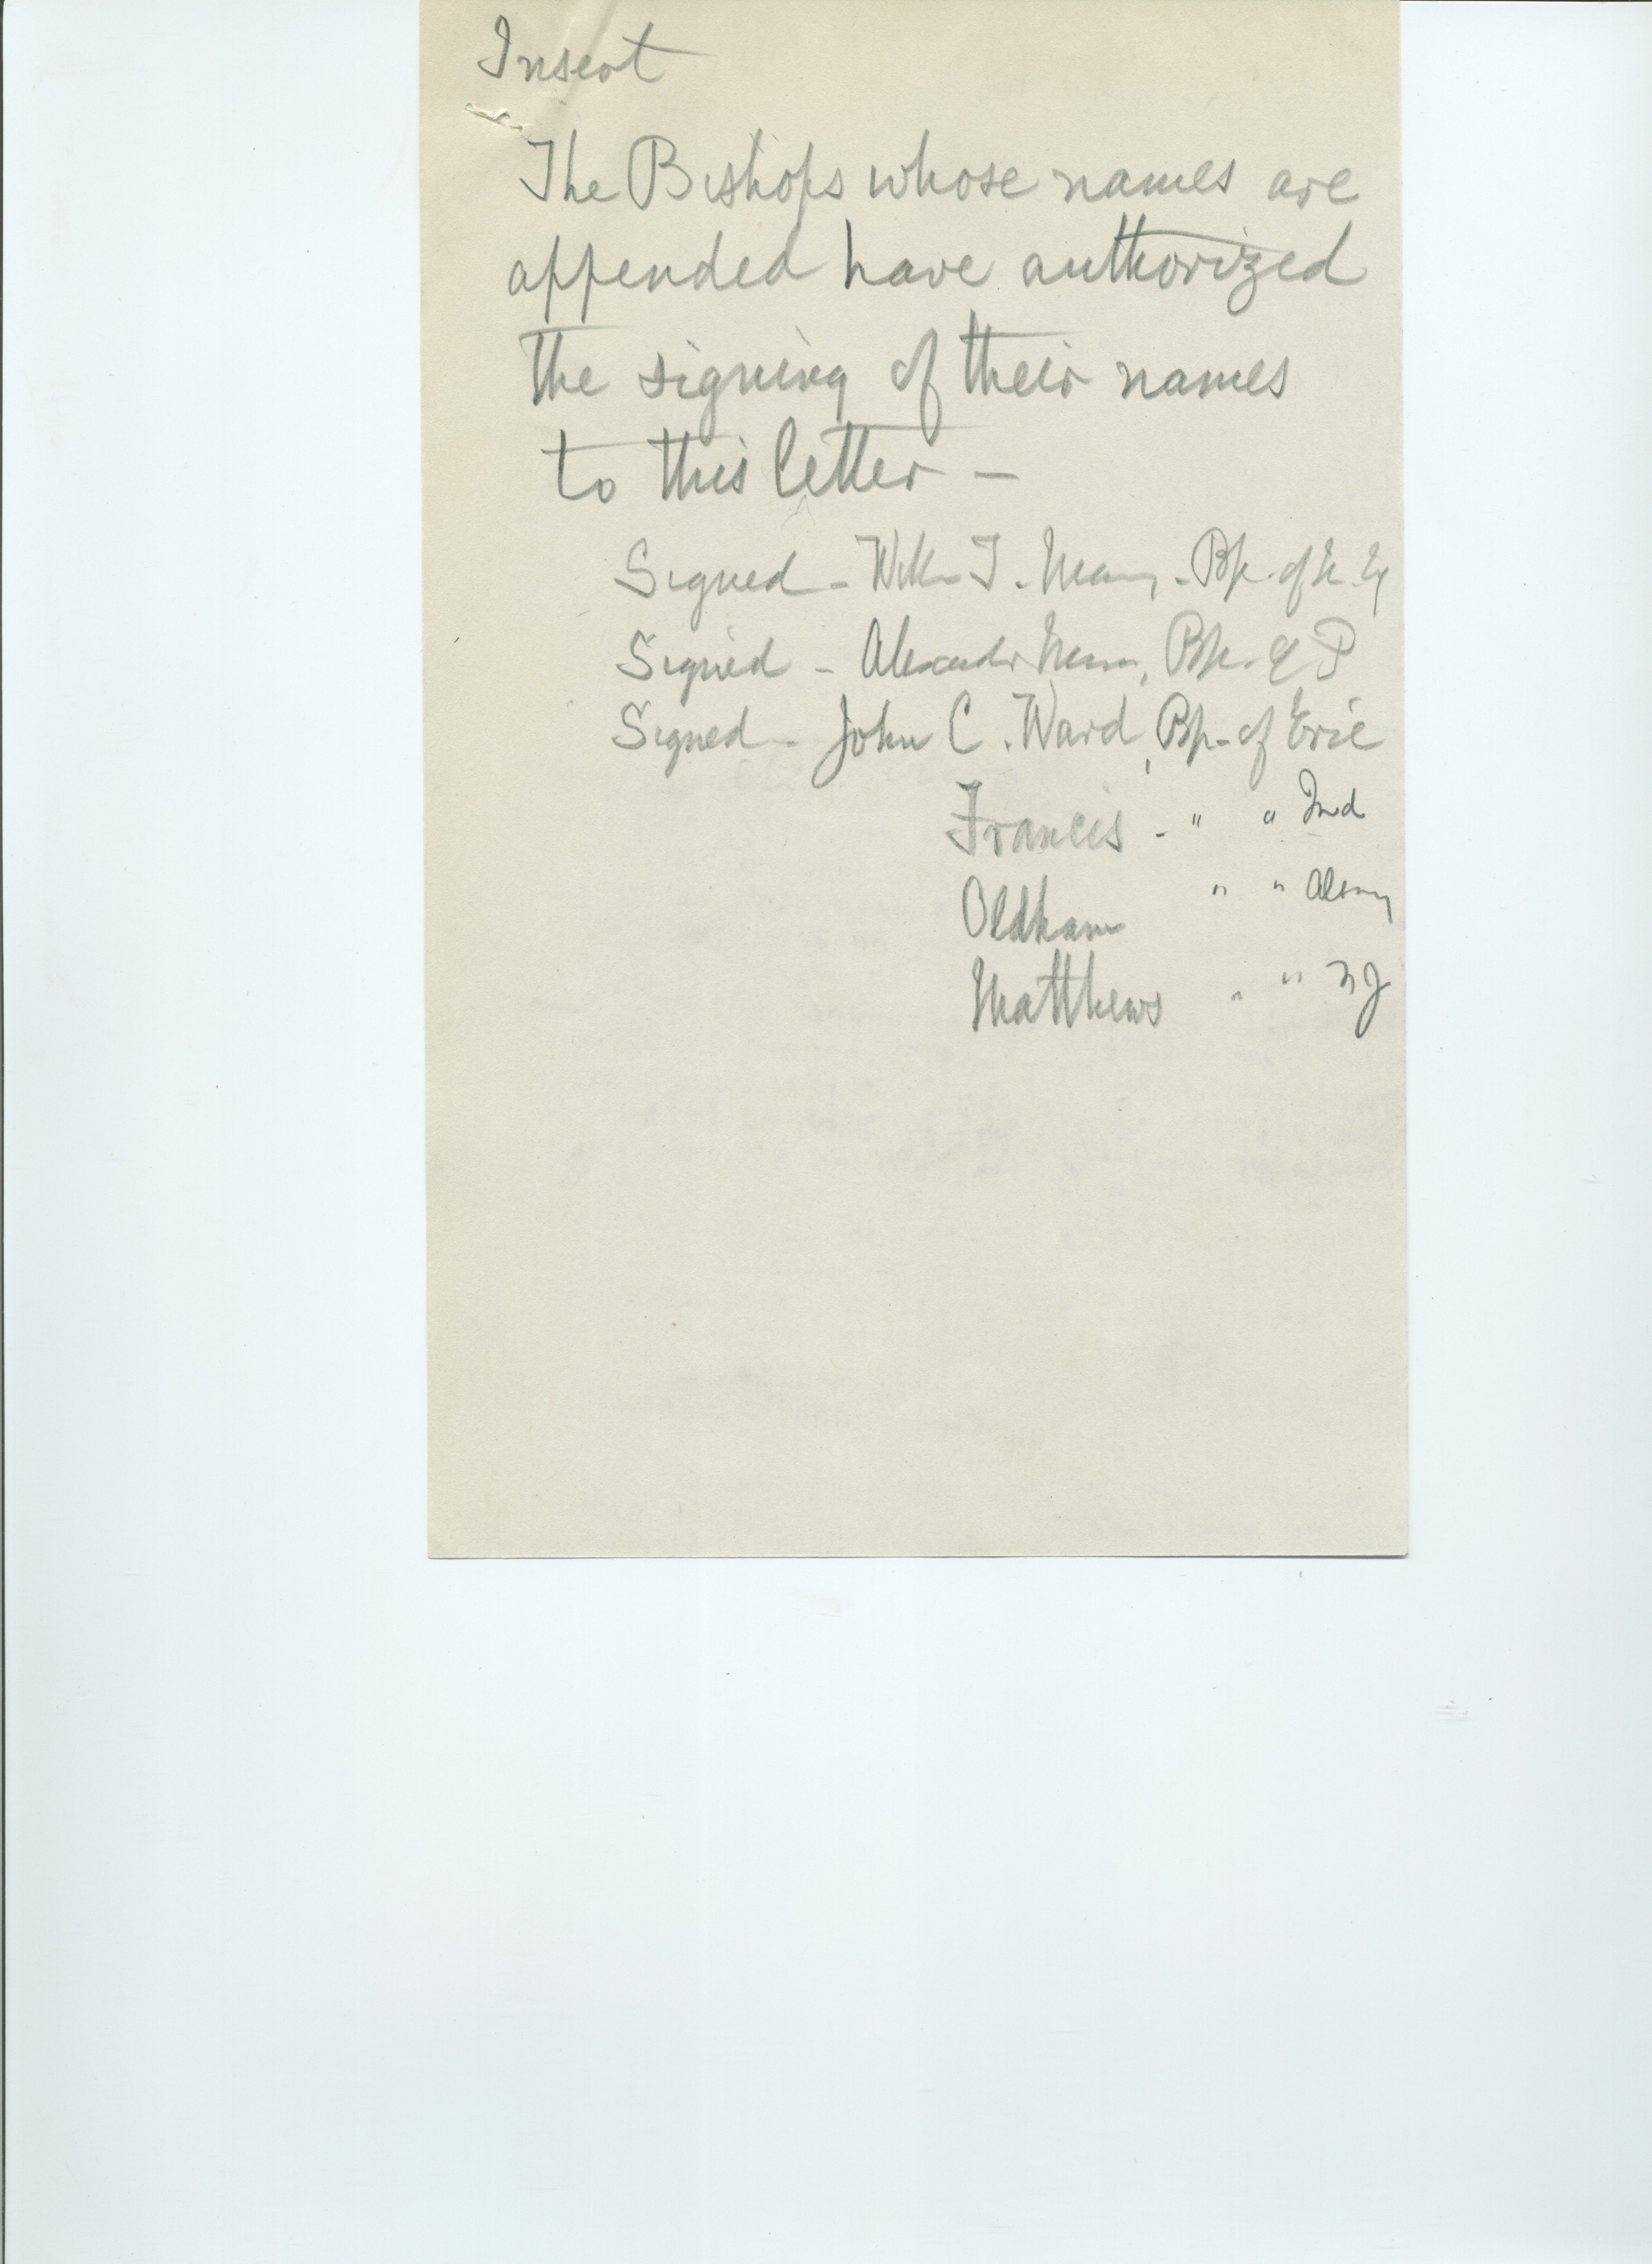 Insert
The Bishops whose names are
appended have authorized
the signing of their names
to this letter –
Signed - Wm T. Manning - Bp. of N.Y
Signed - Alexander Mann, Bp. of P
Signed - John C. Ward, Bp. of Erie
Francis - " " Ind
Oldham " " Albany
Matthews " " NJ